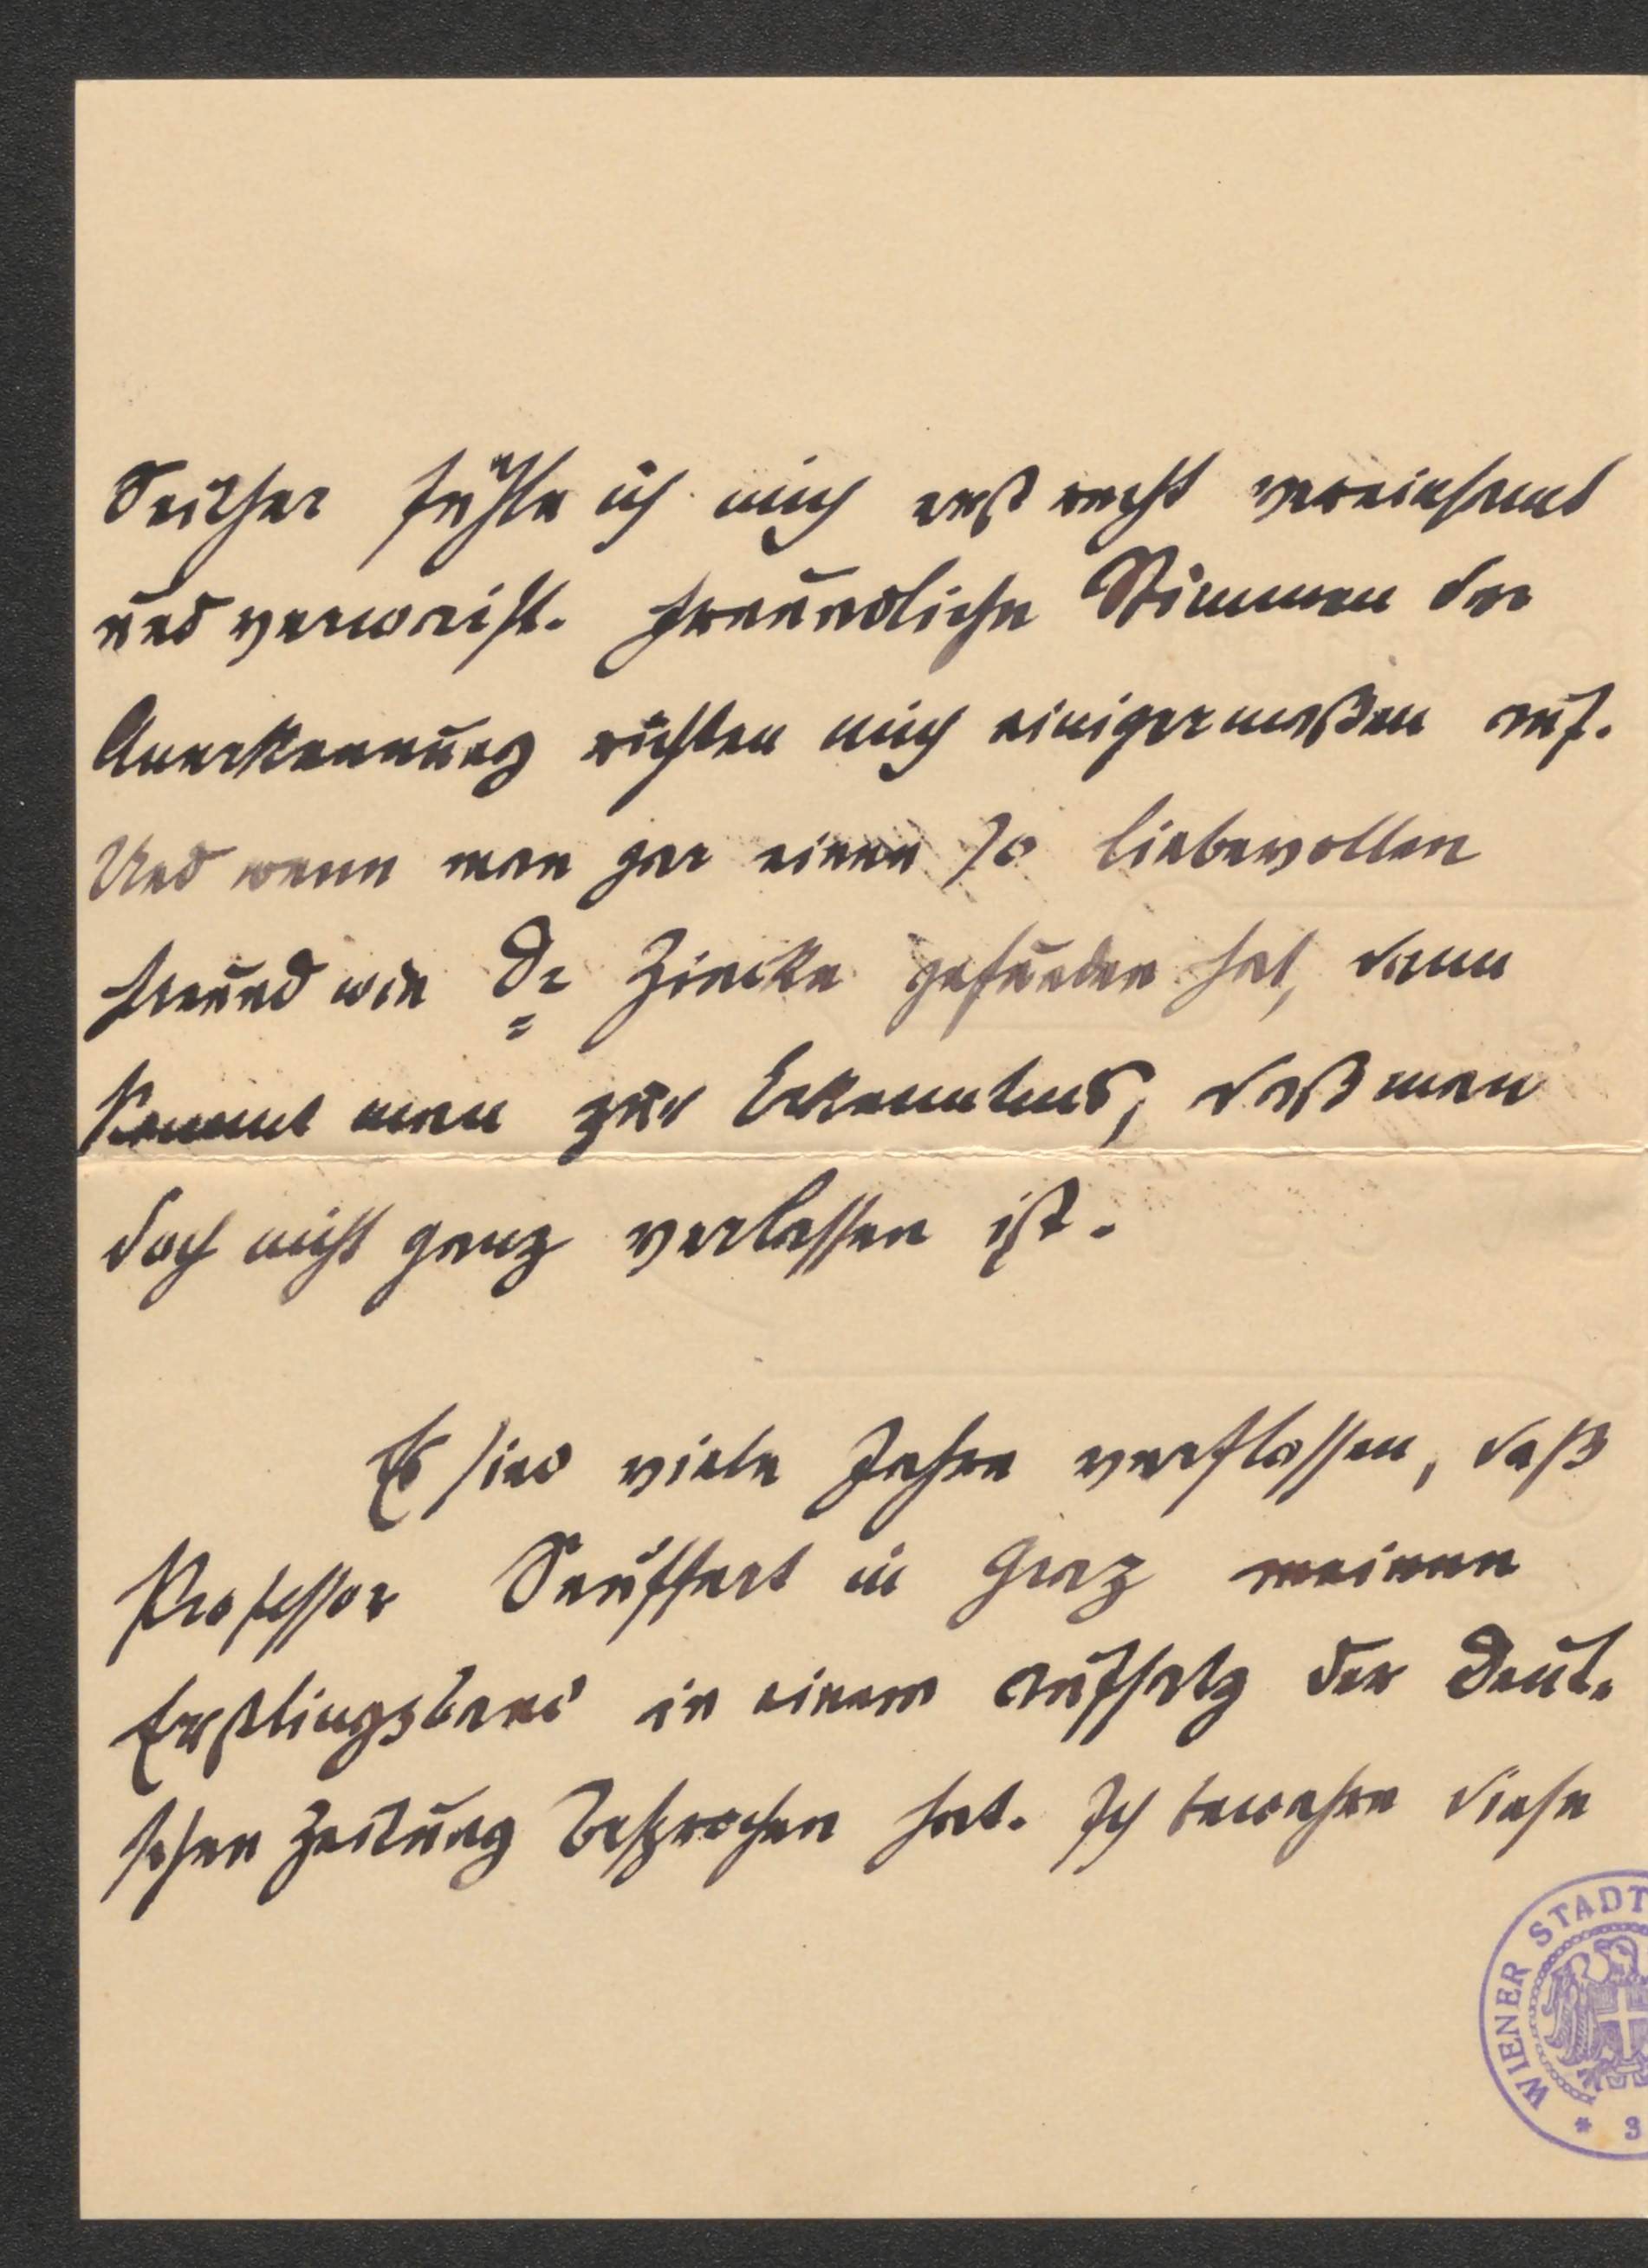 Seither fühle ich mich erst recht vereinsamt
und verwaist. Freundliche Stimmen der
Anerkennung richten mich einigermaßen auf.
Und wenn man gar einen so liebevollen
Freund wie Dr Zincke gefunden hat, dann
kommt man zur Erkenntnis, daß man
doch nicht ganz verlassen ist.
Es sind viele Jahre verflossen, daß
Professor Seuffert in Graz meinen
Erstlingsband in einem Aufsatz der Deut-
schen Zeitung besprochen hat. Ich bewahre diese
WIENER STADT
* 3